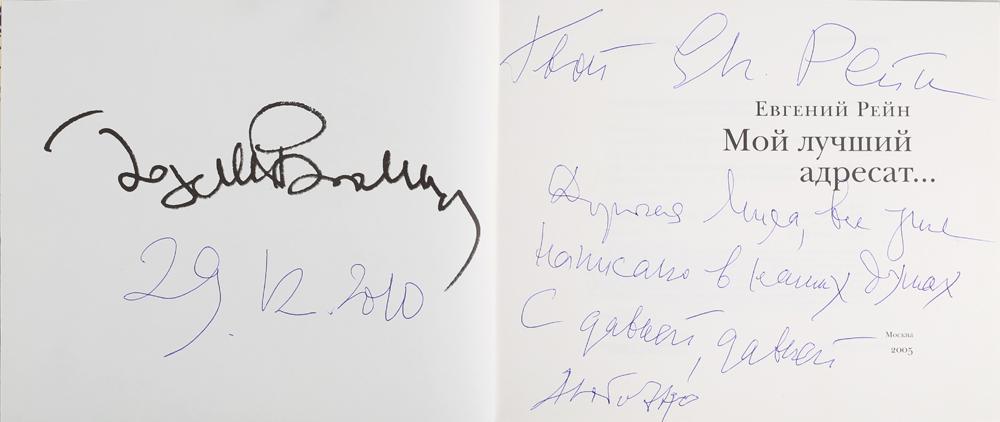 29. 12. 2010
Твой Ев. Рейн
Евгений Рейн
Мой лучший
адресат...
Дорогая Мира, все уже
написано в наших душах
С давней, давней
любовью
Москва
2005